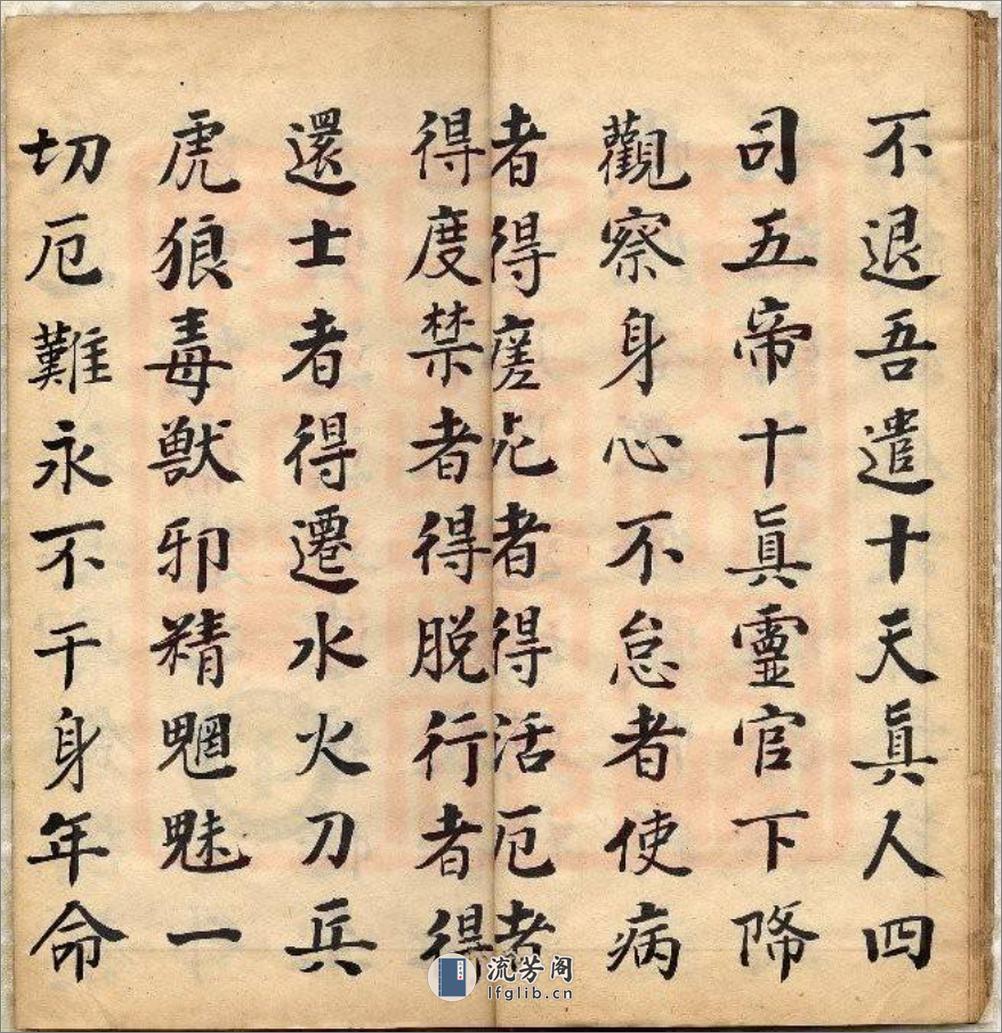 不退吾遣十天眞人四
司五帝十眞靈官下降
觀察身心不怠者使病
者得瘥亡者得活厄者
得度禁者得脱行者得
還士者得遷水火刀兵
虎狼毒獸邪精魍魅一
切厄難永不干身年命
流芳阁
lfglib.cn